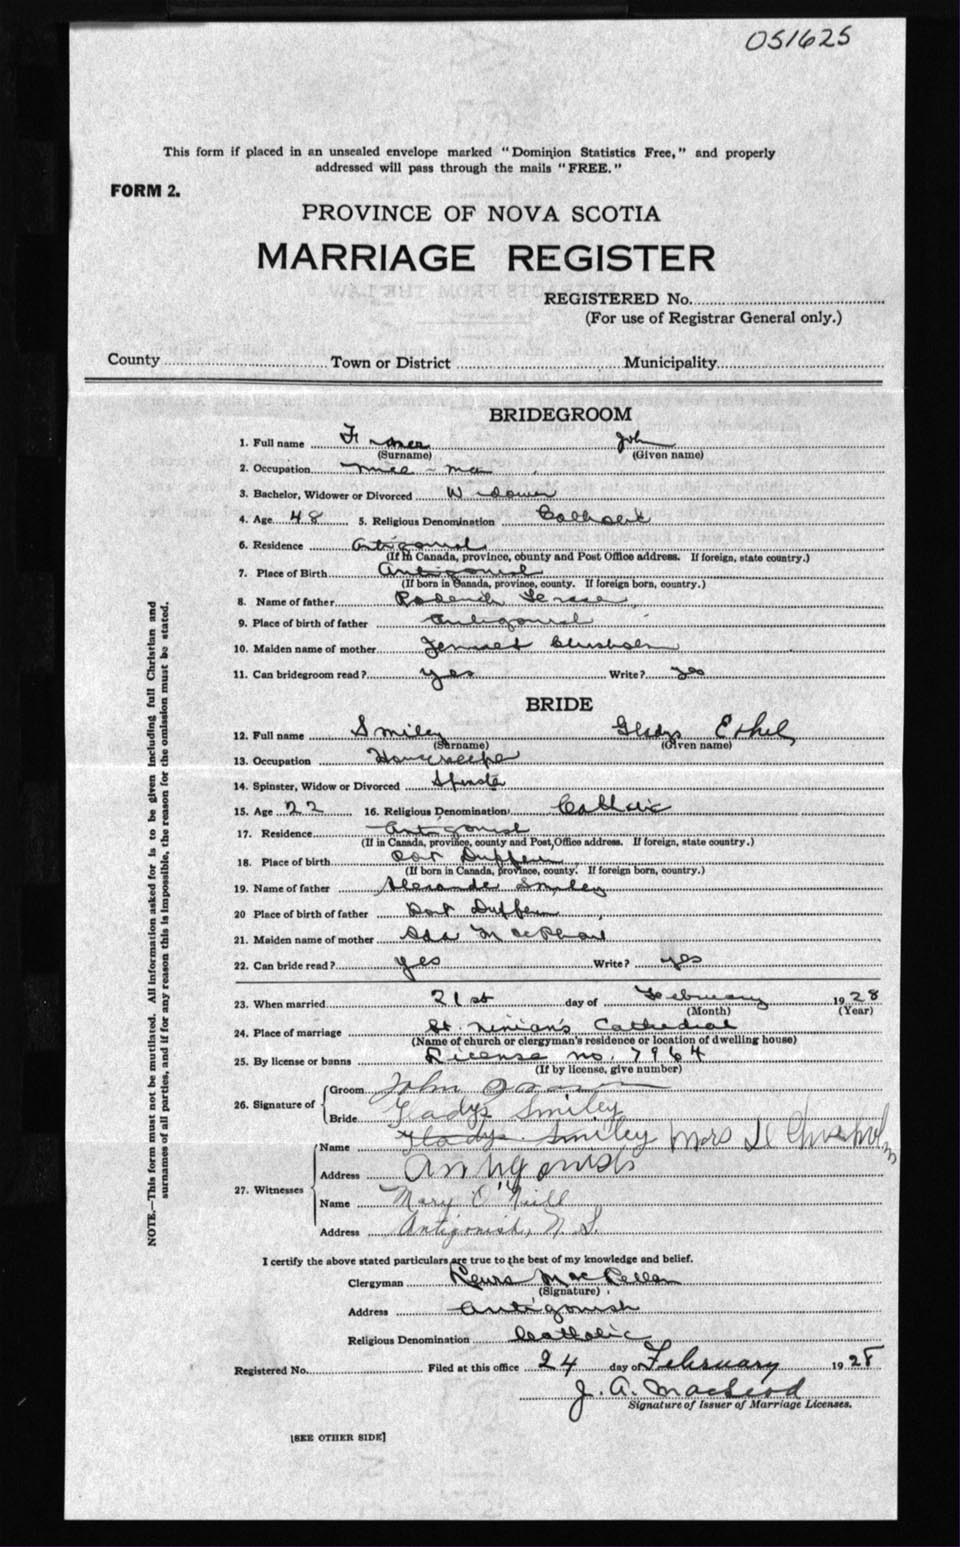 051625
This form if placed in an unsealed envelope marked "Dominion Statistics Free," and properly
addressed will pass through the mails "FREE."
FORM 2.
PROVINCE OF NOVA SCOTIA
MARRIAGE REGISTER
REGISTERED No.
(For use of Registrar General only.)
County Town or District Municipality
BRIDEGROOM
1. Full name John
(Surname) (Given name)
2. Occupation
3. Bachelor, Widower or Divorced Widower
4. Age 48 5. Religious Denomination Catholic
6. Residence Antigonish
(If in Canada, province, county and Post Office address. If foreign, state country.)
7. Place of Birth Antigonish
(If born in Canada, province, county. If foreign born, country.)
8. Name of father Roderick
9. Place of birth of father Antigonish
10. Maiden name of mother Chisholm
11. Can bridegroom read? yes Write? yes
BRIDE
12. Full name Smiley Gladys Ethel
(Surname) (Given name)
13. Occupation Housekeeper
14. Spinster, Widow or Divorced Spinster
15. Age 22 16. Religious Denomination Catholic
17. Residence Antigonish
(If in Canada, province, county and Post Office address. If foreign, state country.)
18. Place of birth Port Dufferin
(If born in Canada, province, county. If foreign born, country.)
19. Name of father Alexander Smiley
20 Place of birth of father Port Dufferin
21. Maiden name of mother Ada MacPhail
22. Can bride read? yes Write? yes
23. When married 21st day of February 1928
(Month) (Year)
24. Place of marriage St. Ninian's Cathedral
(Name of church or clergyman's residence or location of dwelling house)
25. By license or banns License no. 7964
(If by license, give number)
26. Signature of Groom John
Bride Gladys Smiley
27. Witnesses Name Gladys Smiley Mrs Chisholm
Address Antigonish
Name Mary O'Neill
Address Antigonish, N.S.
I certify the above stated particulars are true to the best of my knowledge and belief.
Clergyman MacLellan
(Signature)
Address Antigonish
Religious Denomination Catholic
Registered No. Filed at this office 24 day of February 1928
J. A. MacLeod
Signature of Issuer of Marriage Licenses.
[SEE OTHER SIDE]
NOTE.—This form must not be mutilated. All information asked for is to be given including full Christian and
surnames of all parties, and if for any reason this is impossible, the reason for the omission must be stated.